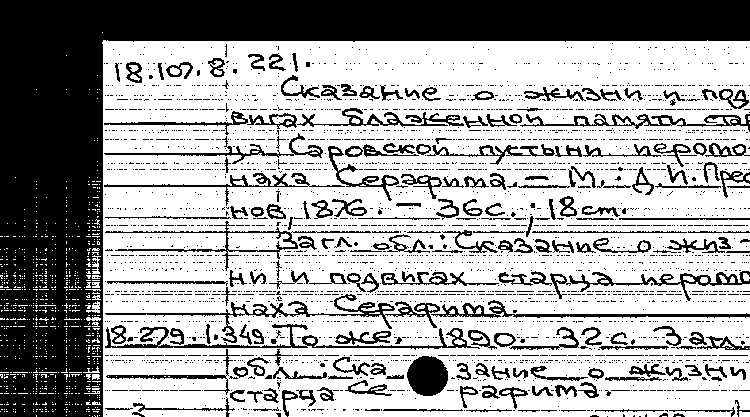 18.107.8.221.
Сказание о жизни и под
вигах блаженной памяти стар
ца Саровской пустыни иеромо
наха Серафима. – М.: Д. И. Прес
нов, 1876. – 36с.; 18 cm.
Загл. обл.: Сказание о жиз-
ни и подвигах старца иеромо
наха Серафима.
18.279.1.349. То же. 1890. 32с. Загл.
обл.: Ска зание о жизни
старца Се рафима.